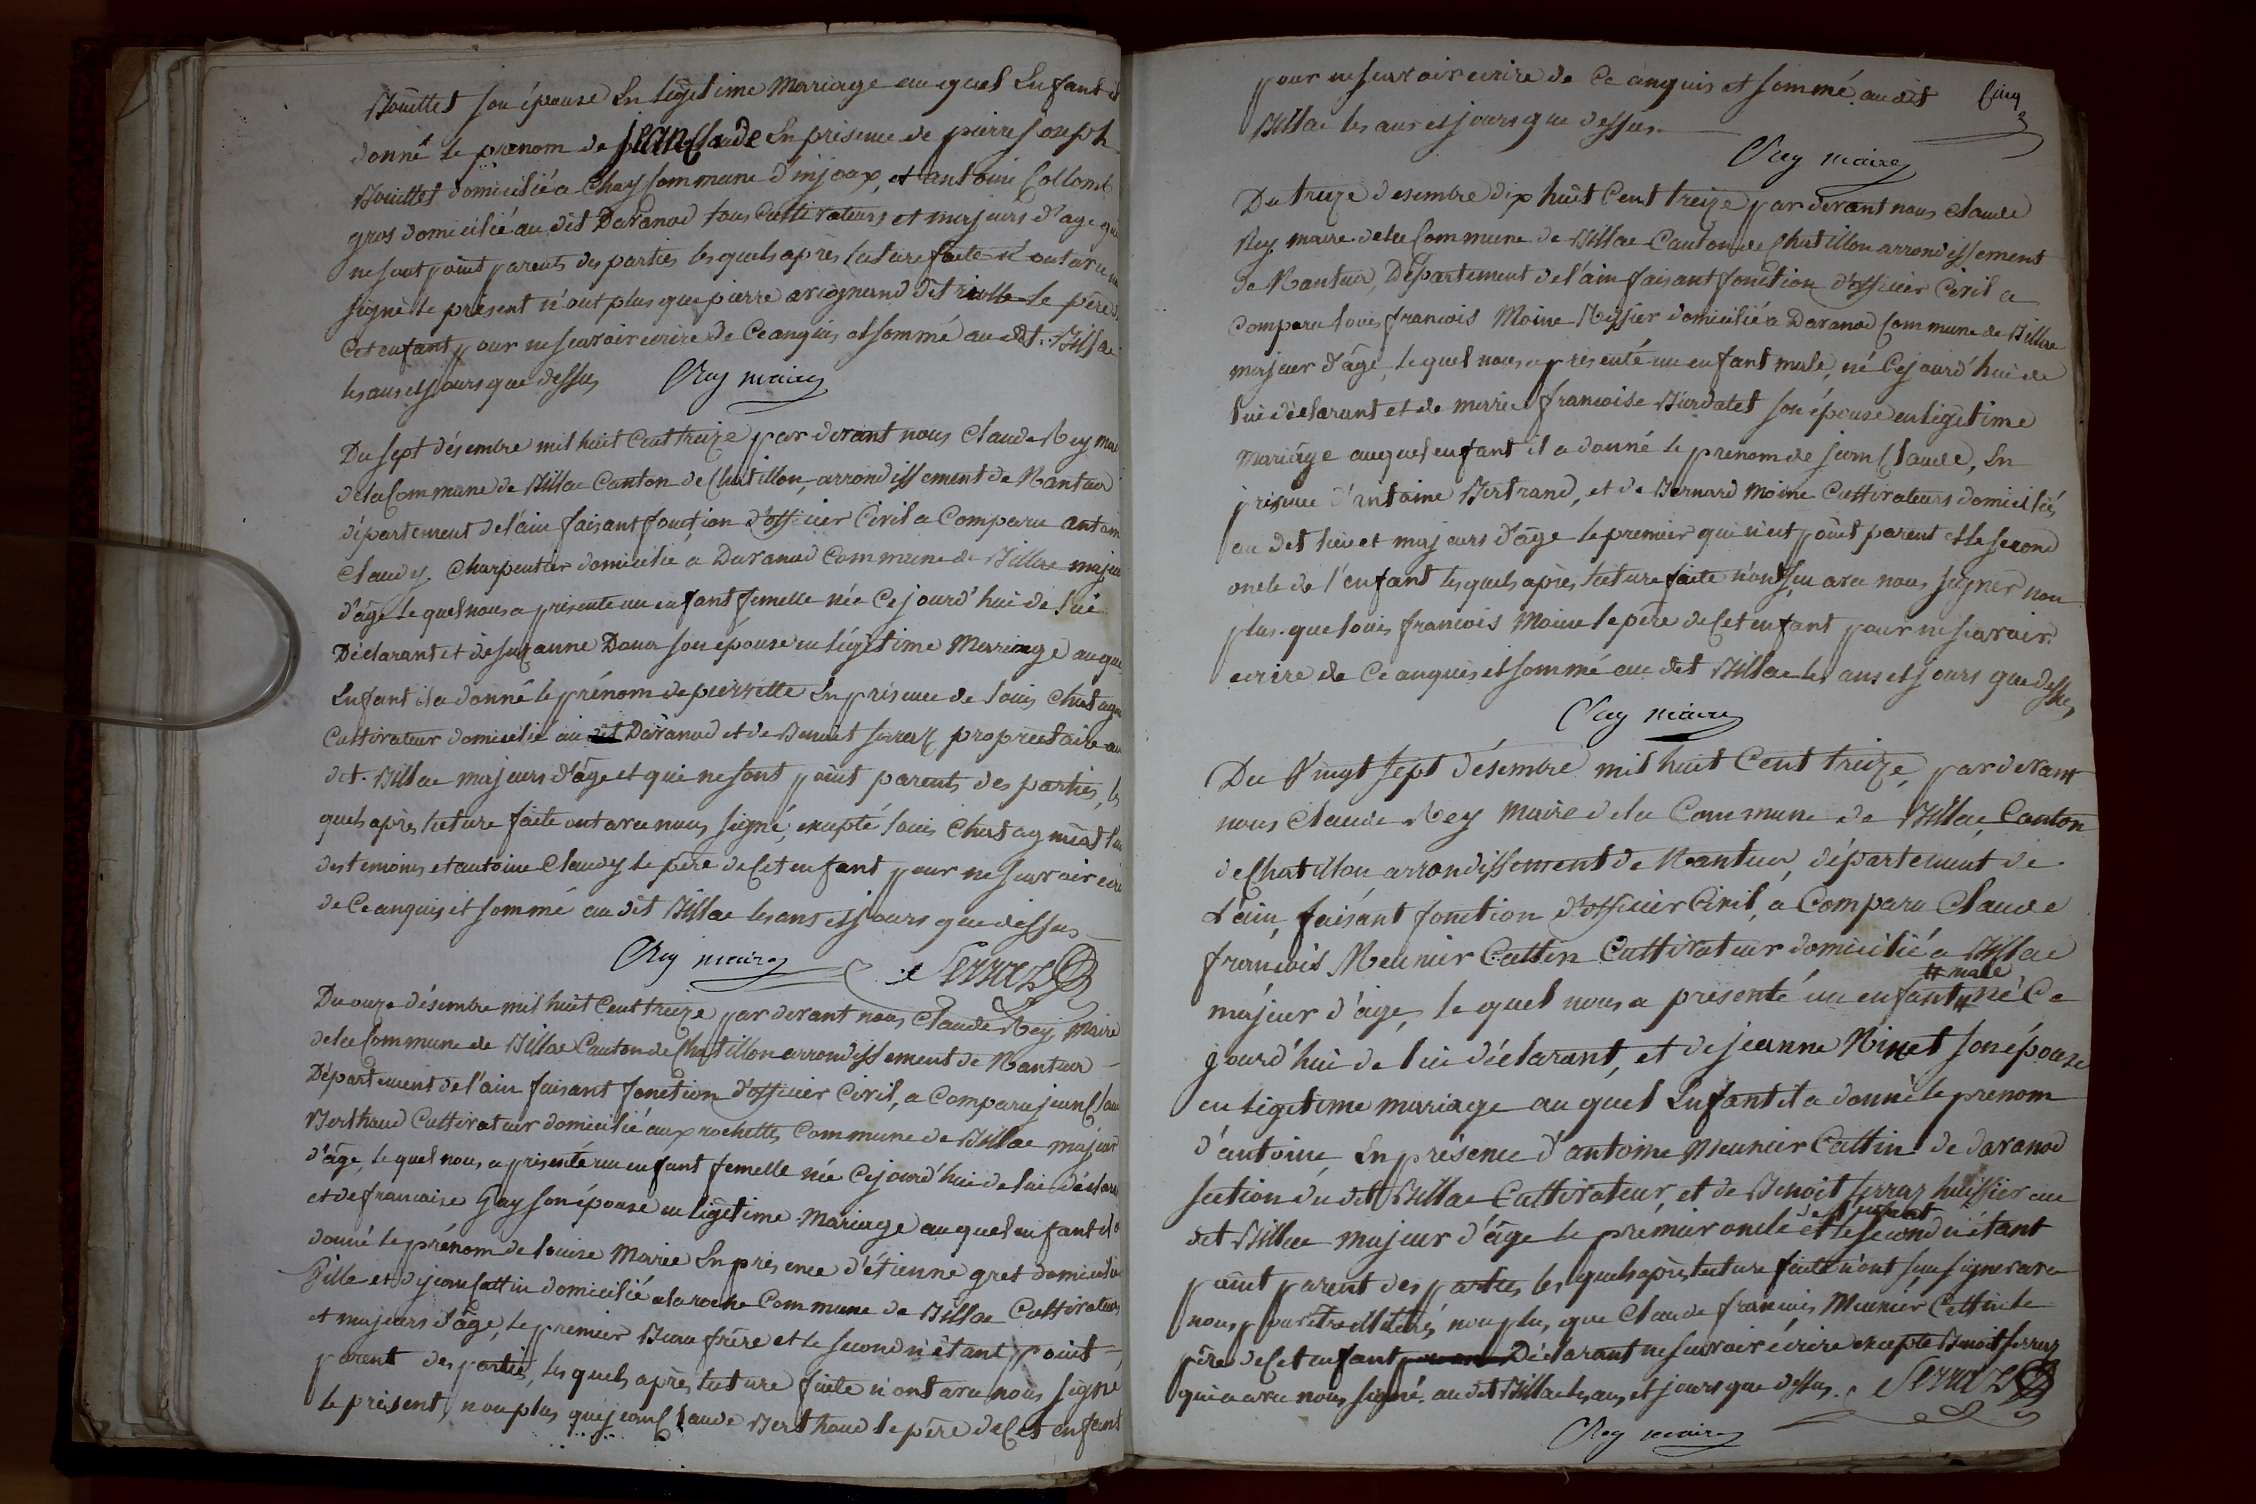 Bouillet son épouse En légitime Mariage au quel Enfant il
donné le prenom de jean Claude En présence de pierre joseph
Bouillet domicilié a Chay Commune d'injoux, et antoine Collomb
gros domicilié au dit Daranod tous Cultivateurs et majeurs d'age qui
ne sont point parents des parties les quels après lecture faite n'ont avec nous
signé le présent n'ont plus que pierre le père de
Cet enfant pour ne scavoir ecrire de Ce anquis et sommé au dit Billac
les ans et jours que dessus Rey maire
Du sept désembre mil huit Cent treize par devant nous Claude Rey mai
de la Commune de Billac Canton de Chatillon, arrondissement de Nantua
département de l'ain faisant fonction d'officier Civil a Comparu antoine
Claudy Charpentier domicilié a Daranod Commune de Billac majeur
d'âge le quel nous a présenté un enfant femelle née Ce jourd'hui de lui
Déclarant et de suzanne Dona son épouse en légitime Mariage au quel
Enfant il a donné le prénom de pierrette En présence de louis Chatagn
Cultivateur domicilié au dit Daranod et de Benoit serraz proprietaire au
dit Billac majeurs d'âge et qui ne sont point parents des parties, les
quels après lecture faite ont avec nous signé, excepté louis Chatagniat l'un
des temoins et antoine Claudy le père de Cet enfant pour ne scavoir ecrire
de Ce anquis et sommé au dit Billac les ans et jours que dessus
Rey maire Serraz
Du onze désembre mil huit Cent treize par devant nous Claude Rey, Maire
de la Commune de Billac Canton de Chatillon arrondissement de Nantua
Département de l'ain faisant fonction d'officier Civil, a Comparu jean Claude
Berthaud Cultivateur domicilié aux rochettes Commune de Billac majeur
d'âge, le quel nous a présenté un enfant femelle née Ce jourd'hui de lui déclarant
et de francoise Gay son épouse en légitime Mariage au quel enfant il a
donné le prénom de louise Marie En présence d'étienne gret domicilié
Bille et de jean Cattin domicilié a la roche Commune de Billac Cultivateurs
et majeurs d'âge, le premier Beau frère et le second n'étant point
parent des partie, les quels après lecture faite n'ont avec nous signé
le présent, non plus que jean Claude Berthaud le père de Cet enfant
Cinq
pour ne scavoir ecrire de Ce anquis et sommé au dit
Billac les ans et jours que dessus
Rey maire
Du treize desembre dix huit Cent treize par devant nous Claude
Rey maire de la Commune de Billac Canton de Chatillon arrondissement
de Nantua, Département de l'ain faisant fonction d'officier Civil a
Comparu louis francois Moine domicilié a Daranod Commune de Billac
majeur d'âge, le quel nous a présenté un enfant male, né Ce jourd'hui de
lui déclarant et de marie francoise Burdalet son épouse en légitime
Mariage auquel enfant il a donné le prenom de jean Claude, En
présence d'antoine Bertrand, et de Bernard Moine Cultivateurs domiciliés
au dit lieu et majeurs d'âge le premier qui n'est point parent et le second
oncle de l'enfant les quels après lecture faite n'ont su avec nous signer non
plus que louis francois Moine le père de Cet enfant pour ne scavoir
ecrire de Ce anquis et sommé au dit Billac les ans et jours que dessus
Rey maire
Du Vingt sept désembre mil huit Cent treize, par devant
nous Claude Rey Maire de la Commune de Billac, Canton
de Chatillon arrondissement de Nantua, département de
L'ain, faisant fonction d'officier Civil, a Comparu Claude
françois Meunier Cattin Cultivateur domicilié a Billac
majeur d'âge, le quel nous a présenté un enfant # male né Ce
jourd'hui de lui déclarant, et de jeanne Ninet son épouse
en légitime mariage au quel Enfant il a donné le prenom
d'antoine En présence d'antoine Meunier Cattin de daranod
section du dit Billac Cultivateur, et de Benoit serraz huissier au
dit Billac majeur d'âge le premier oncle de l'enfant et le second n'étant
point parent des parties les quels après lecture faite n'ont su signer avec
nous pour être illitérés non plus que Claude francois Meunier Cattin le
père de Cet enfant Déclarant ne scavoir écrire excepté Benoit serraz
qui a avec nous signé au dit Billac les ans et jours que dessus. Serraz
Rey maire